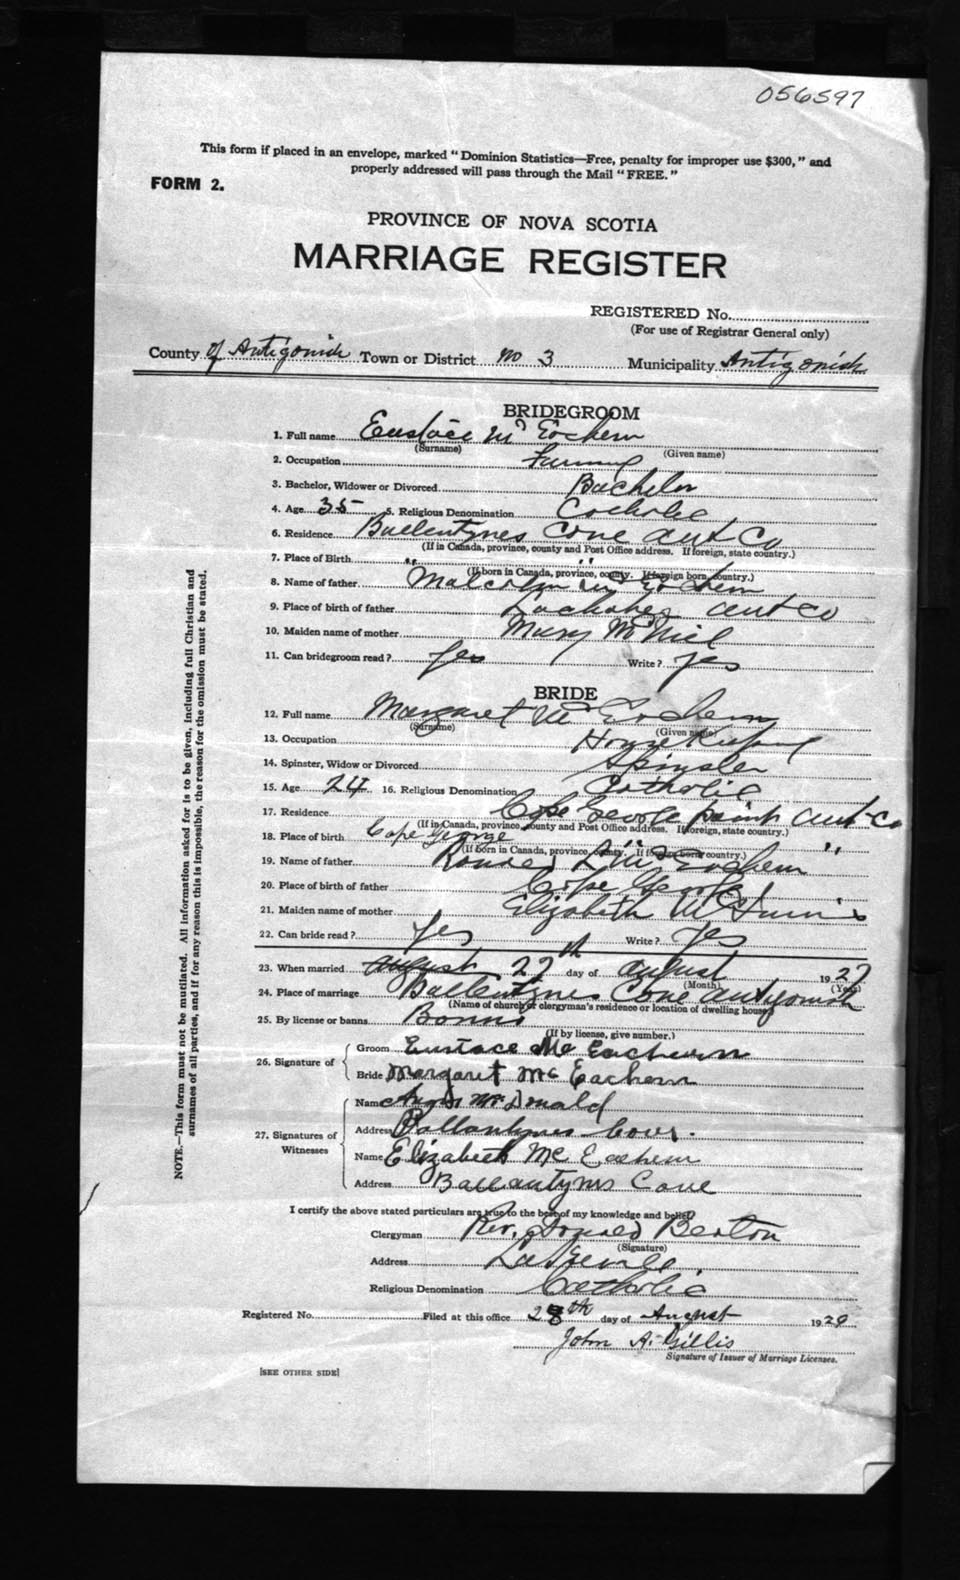 056597
This form if placed in an envelope, marked "Dominion Statistics—Free, penalty for improper use $300," and
properly addressed will pass through the Mail "FREE."
FORM 2.
PROVINCE OF NOVA SCOTIA
MARRIAGE REGISTER
REGISTERED No.
(For use of Registrar General only)
County of Antigonish Town or District no 3 Municipality Antigonish
BRIDEGROOM
1. Full name Eustace Mc Eachern
(Surname) (Given name)
2. Occupation Farming
3. Bachelor, Widower or Divorced Bachelor
4. Age 35 5. Religious Denomination Catholic
6. Residence Ballentynes Cove Ant Co
(If in Canada, province, county and Post Office address. If foreign, state country.)
7. Place of Birth " "
(If born in Canada, province, county. If foreign born, country.)
8. Name of father Malcolm Mc Eachern
9. Place of birth of father Ant Co
10. Maiden name of mother Mary McNiel
11. Can bridegroom read? Yes Write? Yes
BRIDE
12. Full name Margaret Mc Eachern
(Surname) (Given name)
13. Occupation House Keeping
14. Spinster, Widow or Divorced Spinster
15. Age 24 16. Religious Denomination Catholic
17. Residence Cape George point Ant Co
(If in Canada, province, county and Post Office address. If foreign, state country.)
18. Place of birth Cape George " "
(If born in Canada, province, county. If foreign born country.)
19. Name of father Ronald Mc Eachern
20. Place of birth of father Cape George
21. Maiden name of mother Elizabeth McInnis
22. Can bride read? Yes Write? Yes
23. When married August 27th day of August 1927
(Month) (Year)
24. Place of marriage Ballentynes Cove Antigonish
(Name of church or clergyman's residence or location of dwelling house)
25. By license or banns Banns
(If by license, give number.)
26. Signature of
Groom Eustace Mc Eachern
Bride Margaret Mc Eachern
27. Signatures of Witnesses
Name Angus McDonald
Address Ballantynes Cove.
Name Elizabeth Mc Eachern
Address Ballantynes Cove
I certify the above stated particulars are true to the best of my knowledge and belief.
Clergyman Rev. Donald Beaton
(Signature)
Address Lakevale
Religious Denomination Catholic
Registered No. Filed at this office 28th day of August 1929
John A. Gillis
Signature of Issuer of Marriage Licenses.
[SEE OTHER SIDE]
NOTE.—This form must not be mutilated. All information asked for is to be given, including full Christian and
surnames of all parties, and if for any reason this is impossible, the reason for the omission must be stated.